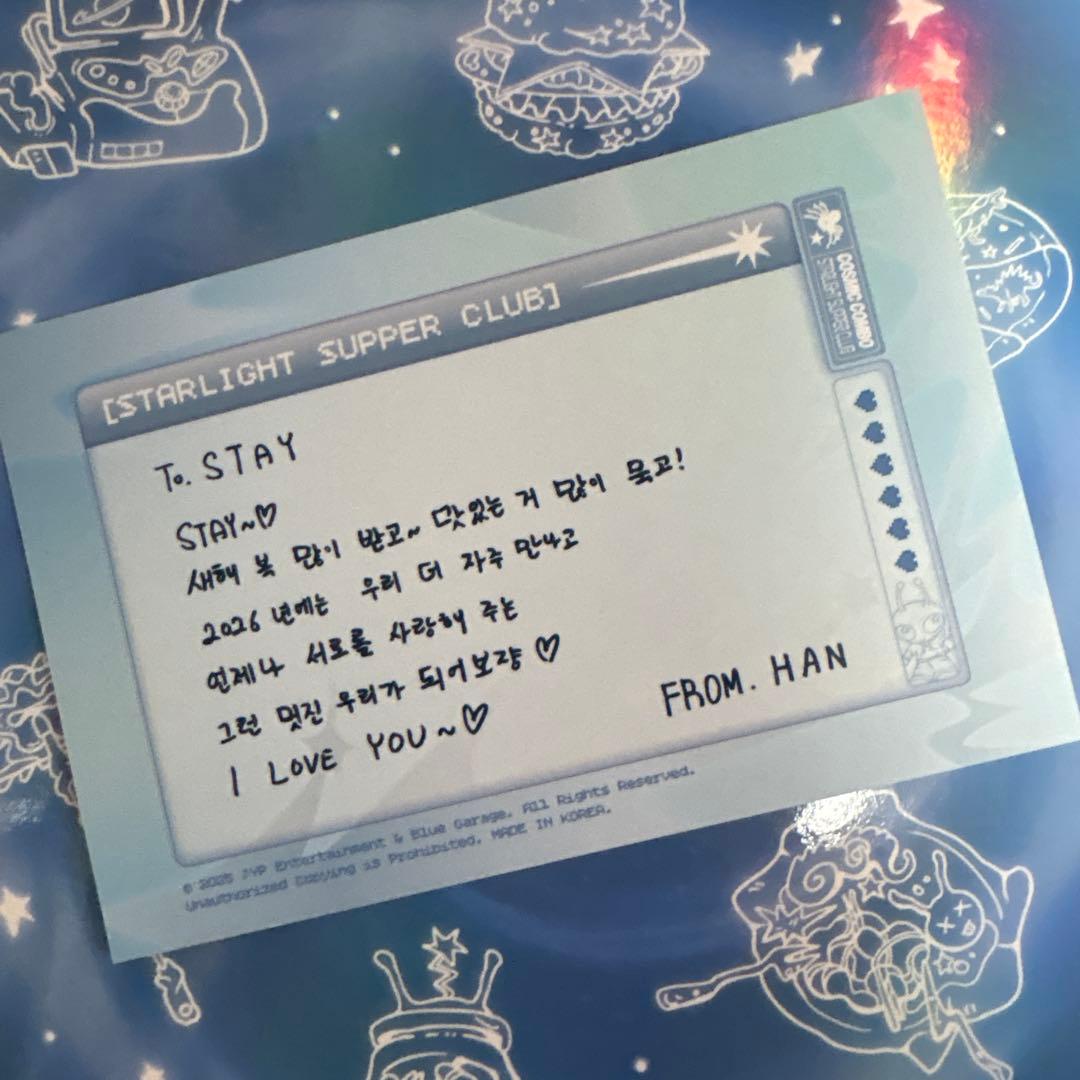 [STARLIGHT SUPPER CLUB]
COSMIC COMBO
STARLIGHT SUPPER CLUB
To. STAY
STAY~♡
새해 복 많이 받고~ 맛있는 거 많이 묵고!
2026년에는 우리 더 자주 만나고
언제나 서로를 사랑해 주는
그런 멋진 우리가 되어보쟝♡
I LOVE YOU~♡
FROM. HAN
© 2025 JYP Entertainment & Blue Garage. All Rights Reserved.
Unauthorized Copying is Prohibited. MADE IN KOREA.